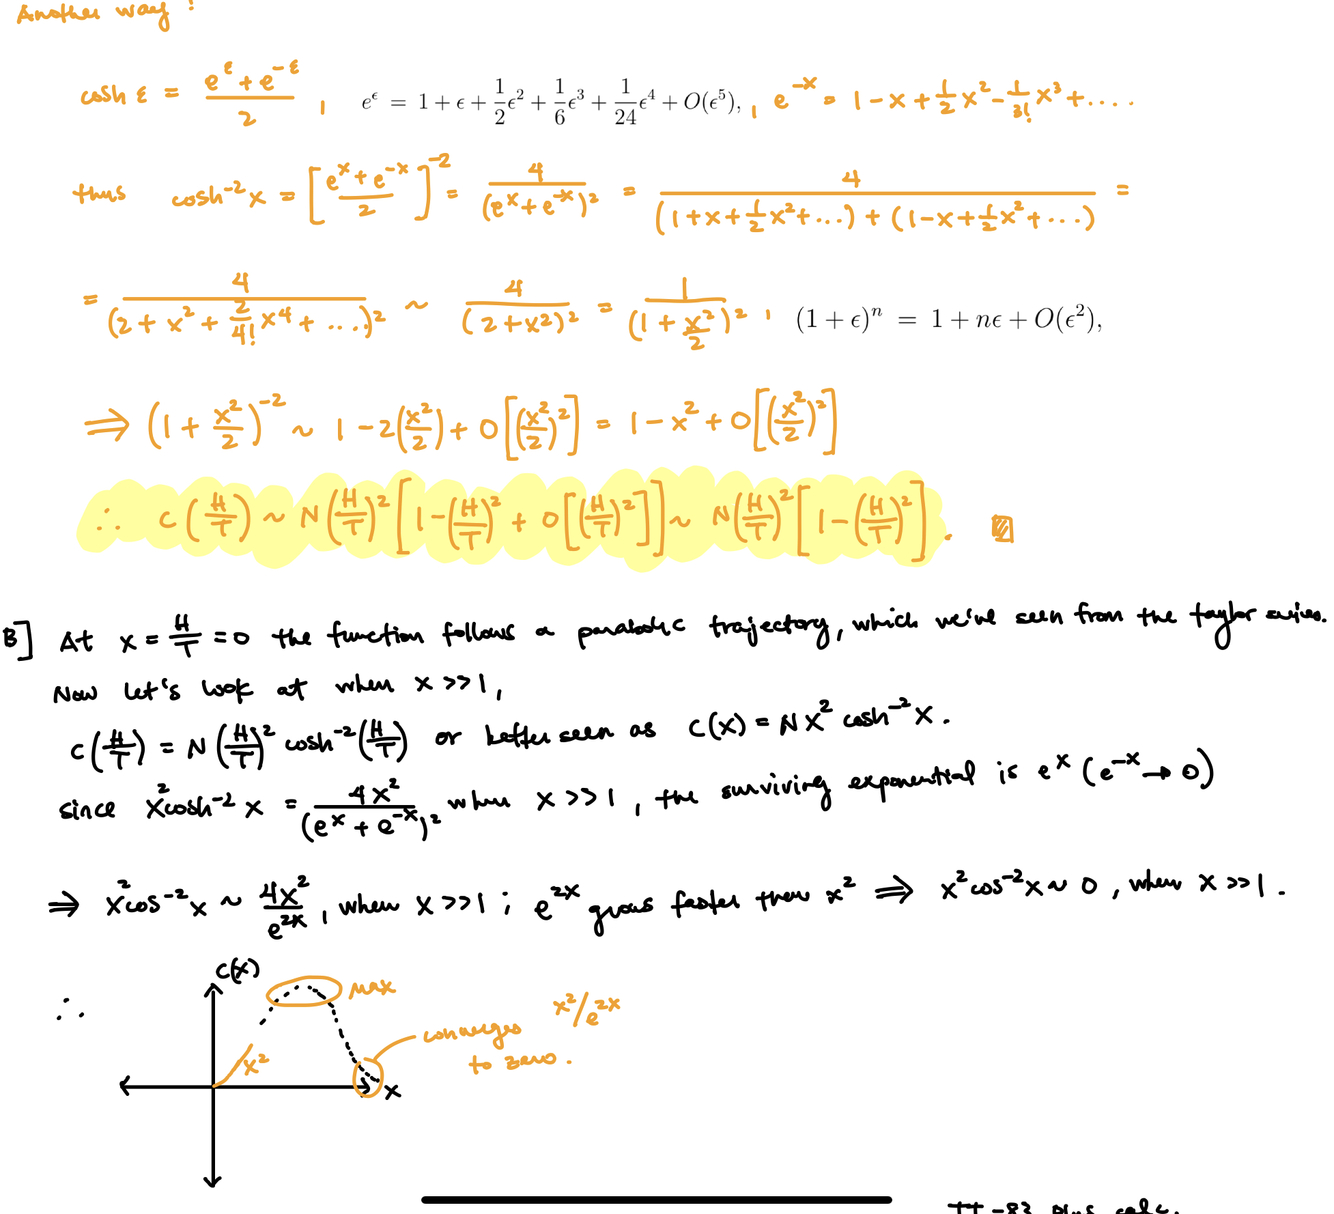 Another way:
cosh ε = (e^ε + e^-ε)/2 , e^ϵ = 1 + ϵ + 1/2 ϵ^2 + 1/6 ϵ^3 + 1/24 ϵ^4 + O(ϵ^5), , e^-x = 1 - x + 1/2 x^2 - 1/3! x^3 + ....
thus cosh^-2 x = [(e^x + e^-x)/2]^-2 = 4/(e^x + e^-x)^2 = 4/((1 + x + 1/2 x^2 + ...) + (1 - x + 1/2 x^2 + ...)) =
= 4/(2 + x^2 + 2/4! x^4 + ...)^2 ~ 4/(2 + x^2)^2 = 1/(1 + x^2/2)^2 , (1 + ϵ)^n = 1 + nϵ + O(ϵ^2),
⇒ (1 + x^2/2)^-2 ~ 1 - 2(x^2/2) + O[(x^2/2)^2] = 1 - x^2 + O[(x^2/2)^2]
∴ C(H/T) ~ N(H/T)^2 [1 - (H/T)^2 + O[(H/T)^2]] ~ N(H/T)^2 [1 - (H/T)^2].
B] At x = H/T = 0 the function follows a parabolic trajectory, which we've seen from the taylor series.
Now let's look at when x >> 1,
C(H/T) = N(H/T)^2 cosh^-2(H/T) or better seen as C(x) = N x^2 cosh^-2 x.
since x^2 cosh^-2 x = 4x^2/(e^x + e^-x)^2 when x >> 1, the surviving exponential is e^x (e^-x → 0)
⇒ x^2 cos^-2 x ~ 4x^2/e^2x, when x >> 1 ; e^2x grows faster then x^2 ⇒ x^2 cos^-2 x ~ 0, when x >> 1.
∴
C(x)
MAX
x^2/e^2x
converges
to zero.
x^2
x
TI-83 plus calc.